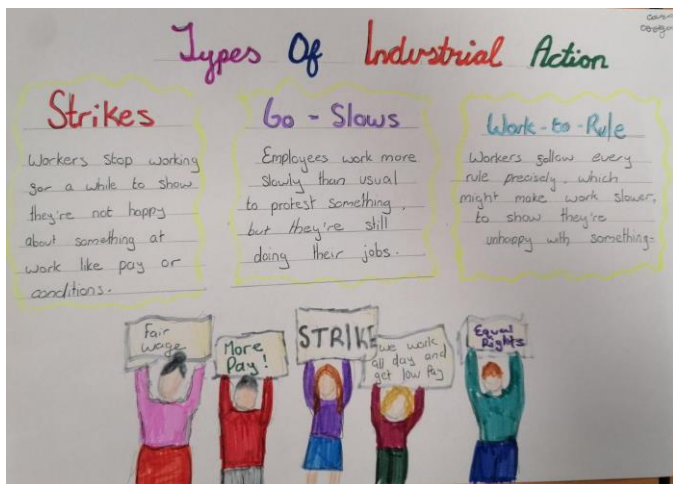 Types Of Industrial Action
Strikes
Workers stop working
for a while to show
they're not happy
about something at
work like pay or
conditions.
Go - Slows
Employees work more
slowly than usual
to protest something,
but they're still
doing their jobs.
Work-to-Rule
Workers follow every
rule precisely, which
might make work slower,
to show they're
unhappy with something.
Fair
Wage
More
Pay!
STRIKE
we work
all day and
get low Pay
Equal
Rights